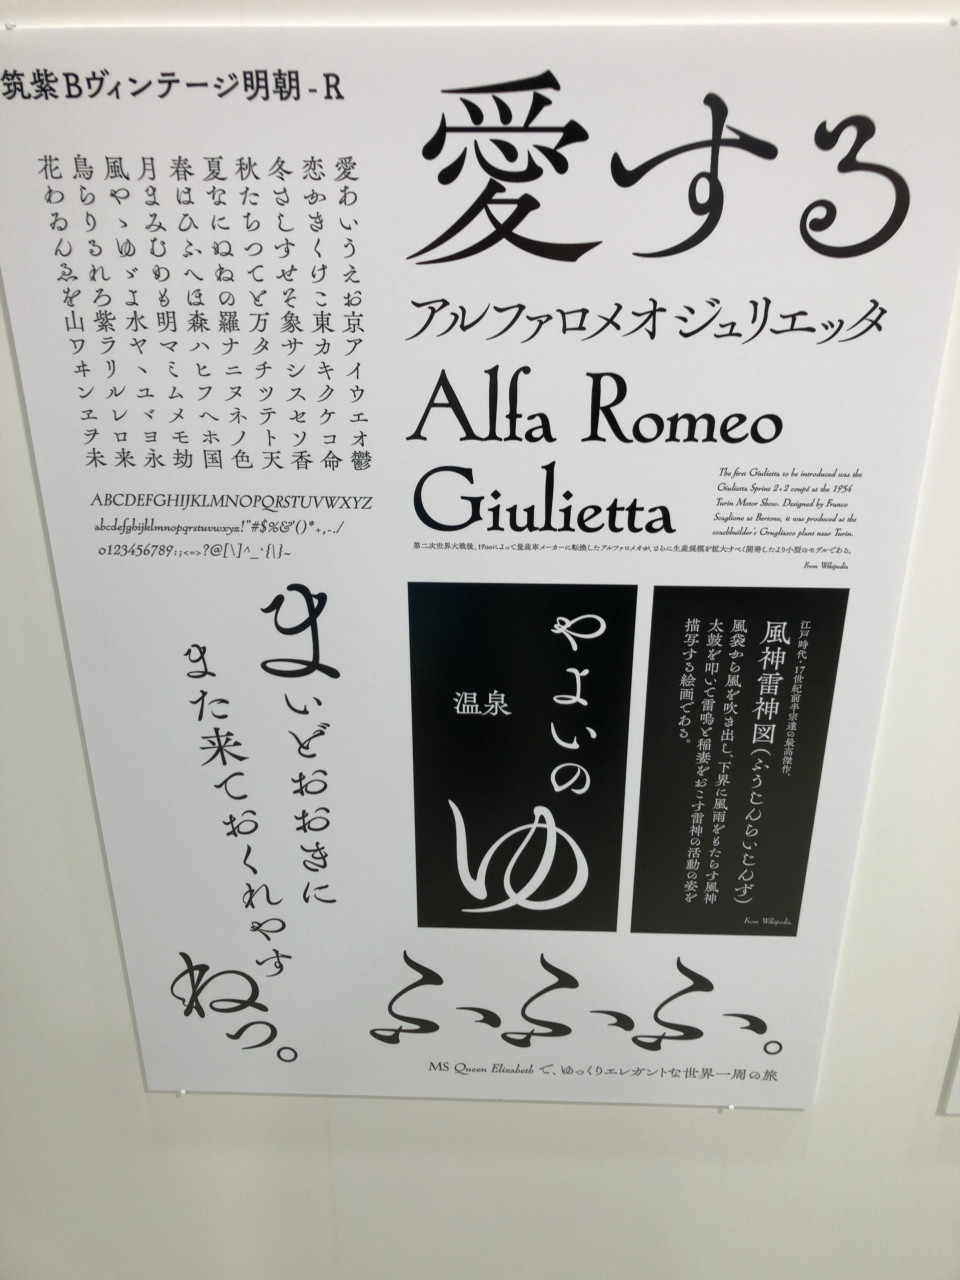 筑紫Bヴィンテージ明朝-R
花鳥風月春夏秋冬恋愛
わらやまはなたさかあ
ゐりゝみひにちしきい
んるゆむふぬつすくう
ゑれゞめへねてせけえ
をろよもほのとそこお
山紫水明森羅万象東京
ワラヤマハナタサカア
ヰリヽミヒニチシキイ
ンルユムフヌツスクウ
ヱレヾメヘネテセケエ
ヲロヨモホノトソコオ
未来永劫国色天香命鬱
ABCDEFGHIJKLMNOPQRSTUVWXYZ
abcdefghijklmnopqrstuvwxyz!"#$%&'()*+,-./
0123456789:;<=>?@[\]^_`{|}~
愛する
アルファロメオジュリエッタ
Alfa Romeo
Giulietta
The first Giulietta to be introduced was the
Giulietta Sprint 2+2 coupé at the 1954
Turin Motor Show. Designed by Franco
Scaglione at Bertone, it was produced at the
coachbuilder's Grugliasco plant near Turin.
第二次世界大戦後、1900によって量産車メーカーに転換したアルファロメオが、さらに生産規模を拡大すべく開発したより小型のモデルである。
From Wikipedia
まいどおおきに
また来ておくれやす
ねっ。
やよいの
ゆ
温泉
江戸時代・17世紀前半宗達の最高傑作。
風神雷神図(ふうじんらいじんず)
風袋から風を吹き出し、下界に風雨をもたらす風神
太鼓を叩いて雷鳴と稲妻をおこす雷神の活動の姿を
描写する絵画である。
From Wikipedia
ふ、ふ、ふ、。
MS Queen Elizabeth で、ゆっくりエレガントな世界一周の旅